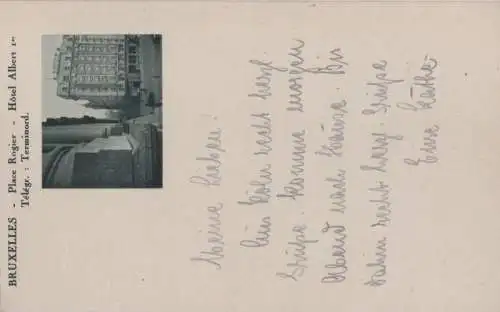 BRUXELLES - Place Rogier - Hôtel Albert 1er
Télégr. : Terminord.
Meine Lieben!
Aus Köln recht herzl.
Grüße. Komme morgen
Abend nach Hause. Bis
dahin recht herzl Grüße
Eure Käthe